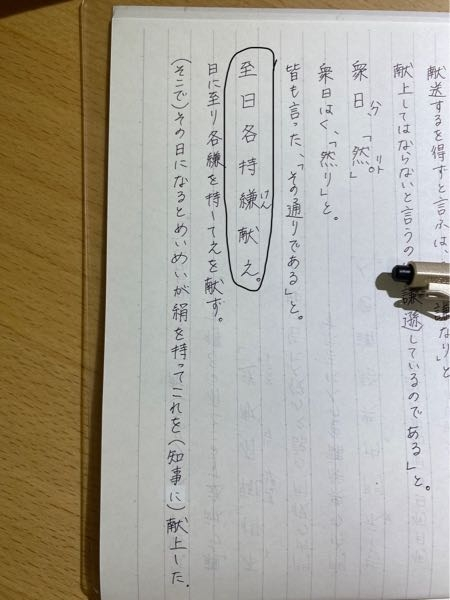 献送するを得ずと言ふは、謙なり」と
献上してはならないと言うの謙遜しているのである」と。
衆曰、「然。」
衆曰はく、「然り」と。
皆も言った、「その通りである」と。
至日各持縑献之。
日に至り各縑を持して之を献ず。
(そこで)その日になるとめいめいが絹を持ってこれを(知事に)献上した。